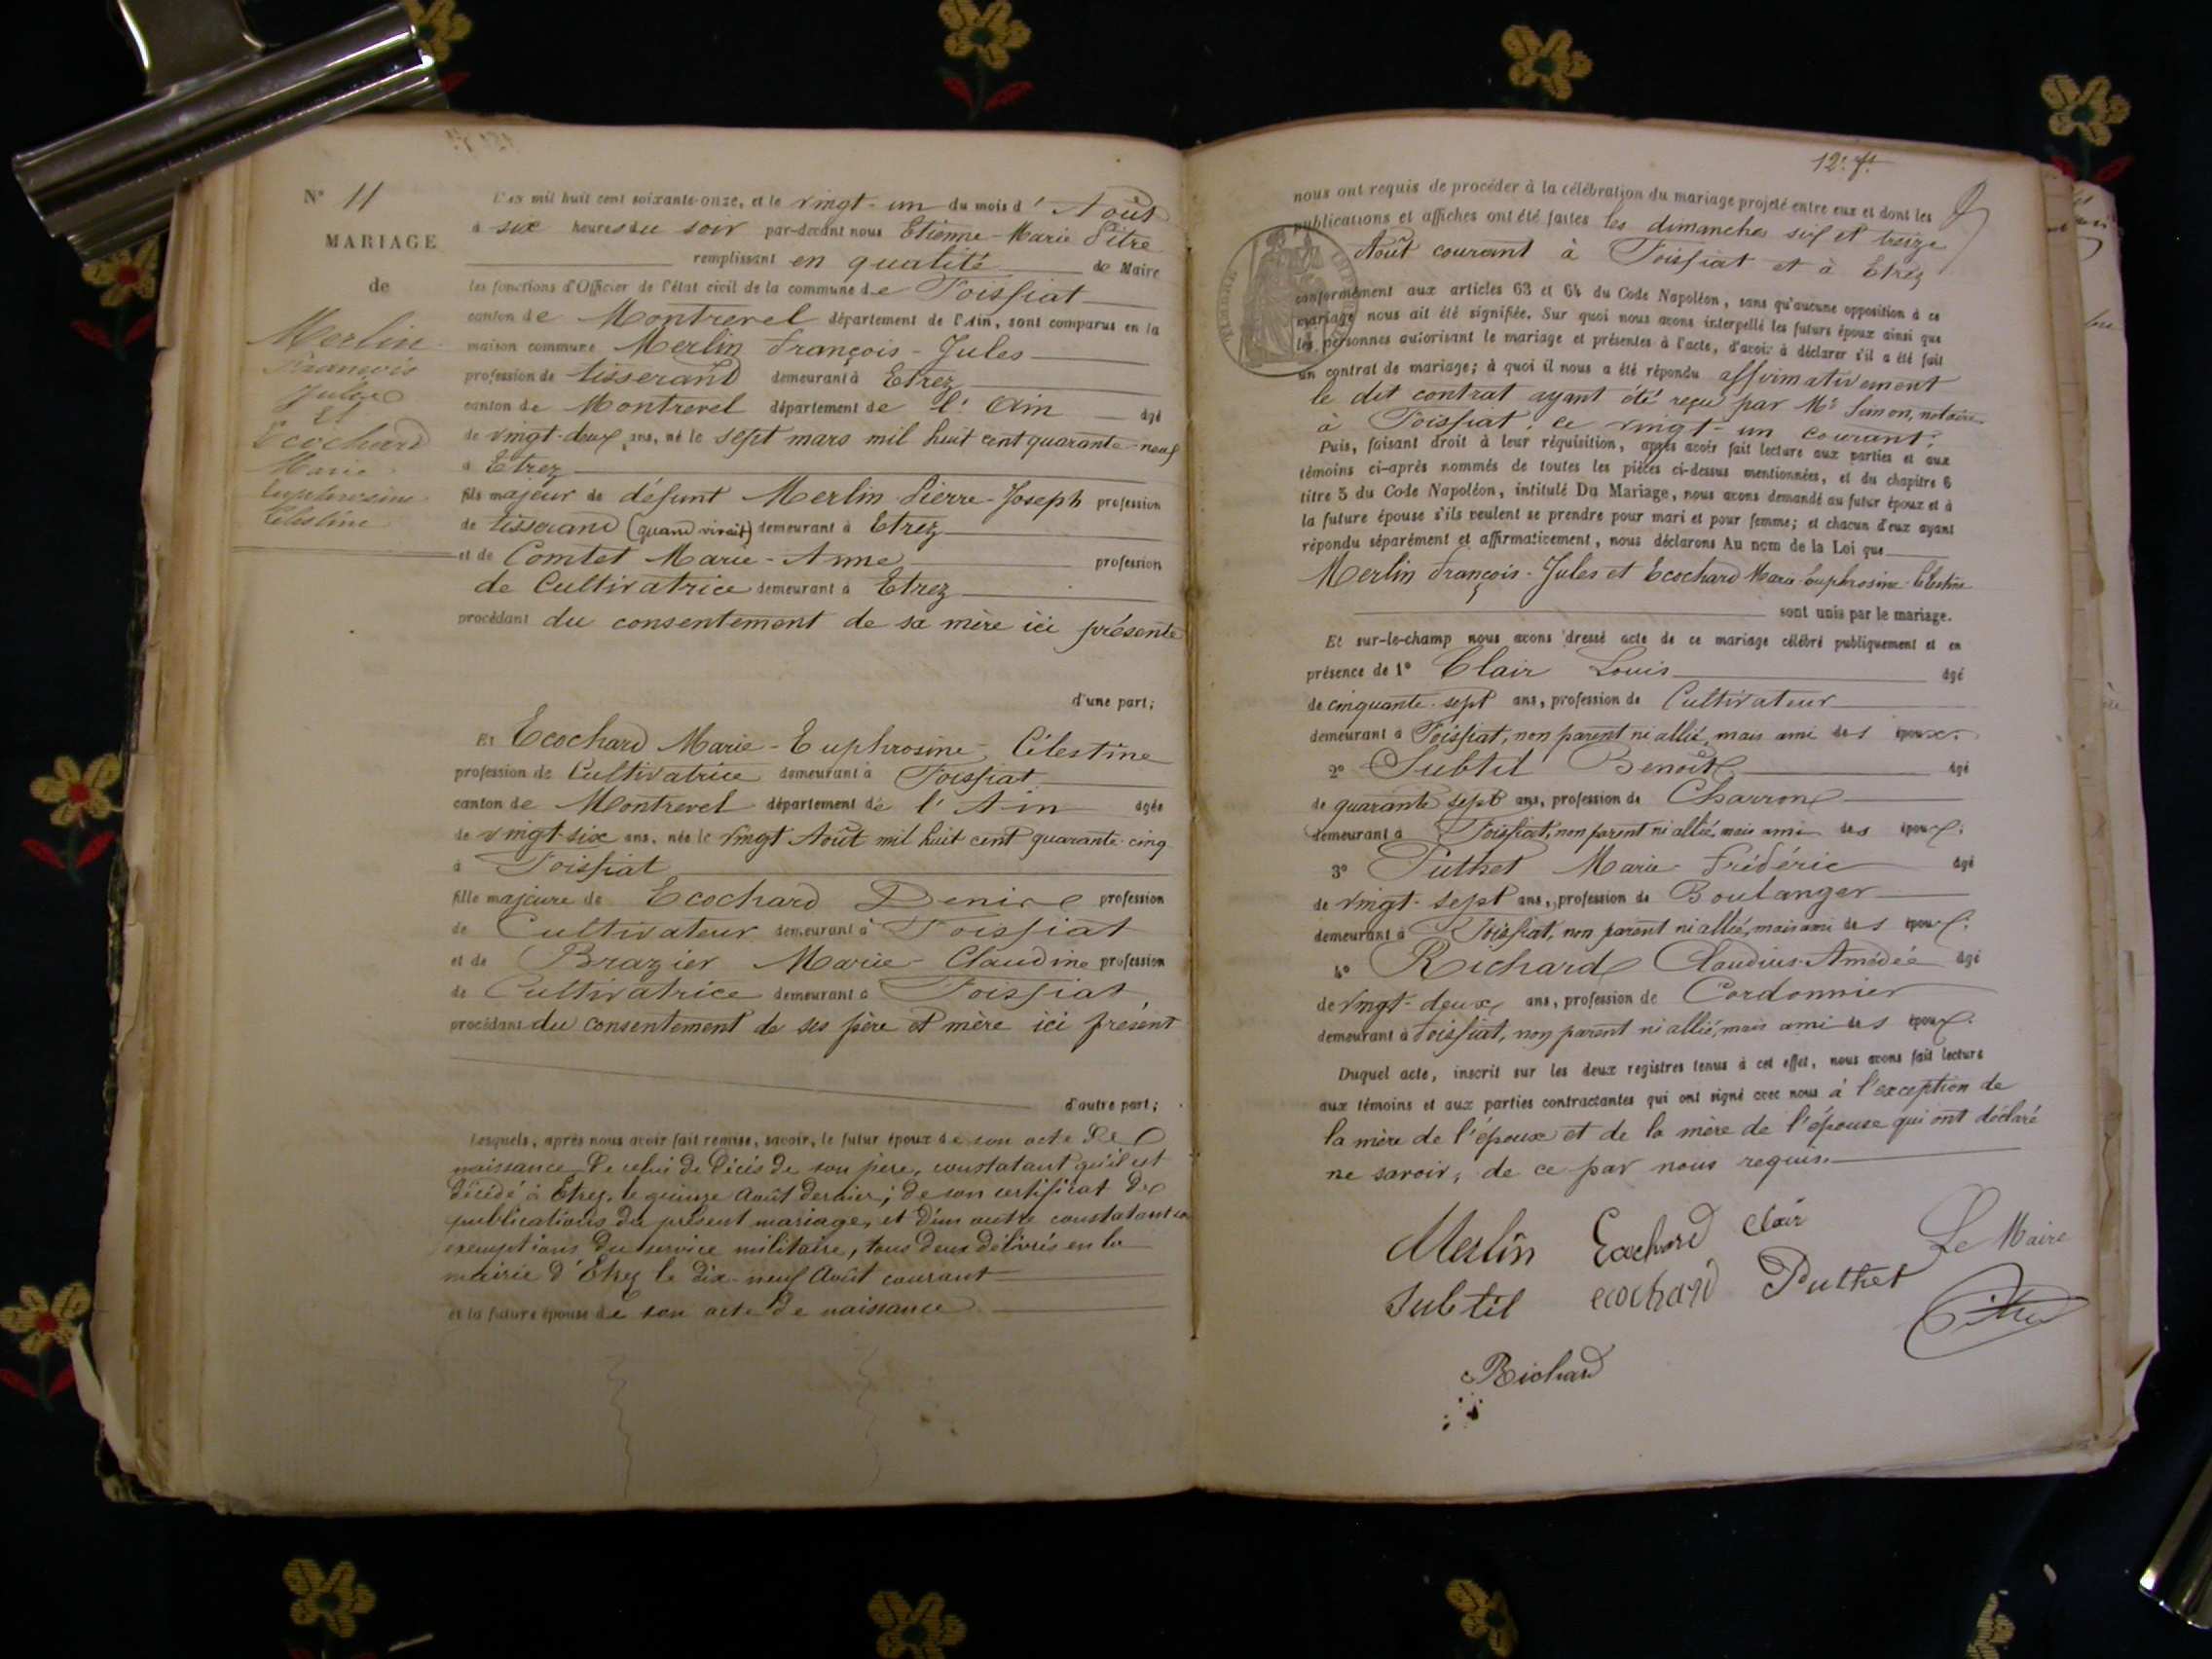 N° 11
MARIAGE
de
Merlin
François
Jules
Et
Ecochard
Marie
Euphrosine
Célestine
L'an mil huit cent soixante-onze, et le vingt-un du mois d'Août
à six heures du soir par-devant nous Etienne-Marie Pitre
remplissant en qualité de Maire
les fonctions d'Officier de l'état civil de la commune de Foissiat
canton de Montrevel département de l'Ain, sont comparus en la
maison commune Merlin François-Jules
profession de tisserand demeurant à Etrez
canton de Montrevel département de l'Ain âgé
de vingt-deux ans, né le sept mars mil huit cent quarante-neuf
à Etrez
fils majeur de défunt Merlin Pierre-Joseph profession
de tisserand (quand vivait) demeurant à Etrez
et de Comtet Marie-Anne profession
de Cultivatrice demeurant à Etrez
procédant du consentement de sa mère ici présente
d'une part;
Et Ecochard Marie-Euphrosine-Célestine
profession de Cultivatrice demeurant à Foissiat
canton de Montrevel département de l'Ain âgée
de vingt-six ans, née le vingt Août mil huit cent quarante-cinq
à Foissiat
fille majeure de Ecochard Denis profession
de Cultivateur demeurant à Foissiat
et de Brazier Marie-Claudine profession
de Cultivatrice demeurant à Foissiat
procédant du consentement de ses père et mère ici présent
d'autre part;
Lesquels, après nous avoir fait remise, savoir, le futur époux de son acte de
naissance de celui de décès de son père, constatant qu'il est
décédé à Etrez, le quinze Août dernier; de son certificat de
publications du présent mariage, et d'un autre constatant
exemptions du service militaire, tous deux délivrés en la
mairie d'Etrez le dix-neuf Août courant
et la future épouse de son acte de naissance
12e ft
nous ont requis de procéder à la célébration du mariage projeté entre eux et dont les
publications et affiches ont été faites les dimanches six et treize
Août courant à Foissiat et à Etrez
conformément aux articles 63 et 64 du Code Napoléon, sans qu'aucune opposition à ce
mariage nous ait été signifiée. Sur quoi nous avons interpellé les futurs époux ainsi que
les personnes autorisant le mariage et présentes à l'acte, d'avoir à déclarer s'il a été fait
un contrat de mariage; à quoi il nous a été répondu affirmativement
le dit contrat ayant été reçu par Me Simon, notaire
à Foissiat, ce vingt-un courant.
Puis, faisant droit à leur réquisition, après avoir fait lecture aux parties et aux
témoins ci-après nommés de toutes les pièces ci-dessus mentionnées, et du chapitre 6
titre 5 du Code Napoléon, intitulé Du Mariage, nous avons demandé au futur époux et à
la future épouse s'ils veulent se prendre pour mari et pour femme; et chacun d'eux ayant
répondu séparément et affirmativement, nous déclarons Au nom de la Loi que
Merlin François-Jules et Ecochard Marie-Euphrosine-Célestine
sont unis par le mariage.
Et sur-le-champ nous avons dressé acte de ce mariage célébré publiquement et en
présence de 1° Clair Louis âgé
de cinquante-sept ans, profession de Cultivateur
demeurant à Foissiat, non parent ni allié, mais ami des époux.
2° Subtil Benoit âgé
de quarante-sept ans, profession de Charron
demeurant à Foissiat, non parent ni allié, mais ami des époux.
3° Puthet Marie-Frédéric âgé
de vingt-sept ans, profession de Boulanger
demeurant à Foissiat, non parent ni allié, mais ami des époux.
4° Richard Claudius-Amédée âgé
de vingt-deux ans, profession de Cordonnier
demeurant à Foissiat, non parent ni allié, mais ami des époux.
Duquel acte, inscrit sur les deux registres tenus à cet effet, nous avons fait lecture
aux témoins et aux parties contractantes qui ont signé avec nous à l'exception de
la mère de l'époux et de la mère de l'épouse qui ont déclaré
ne savoir, de ce par nous requis.
Merlin Ecochard Clair
Le Maire
Subtil ecochard Puthet
Pitre
Richard